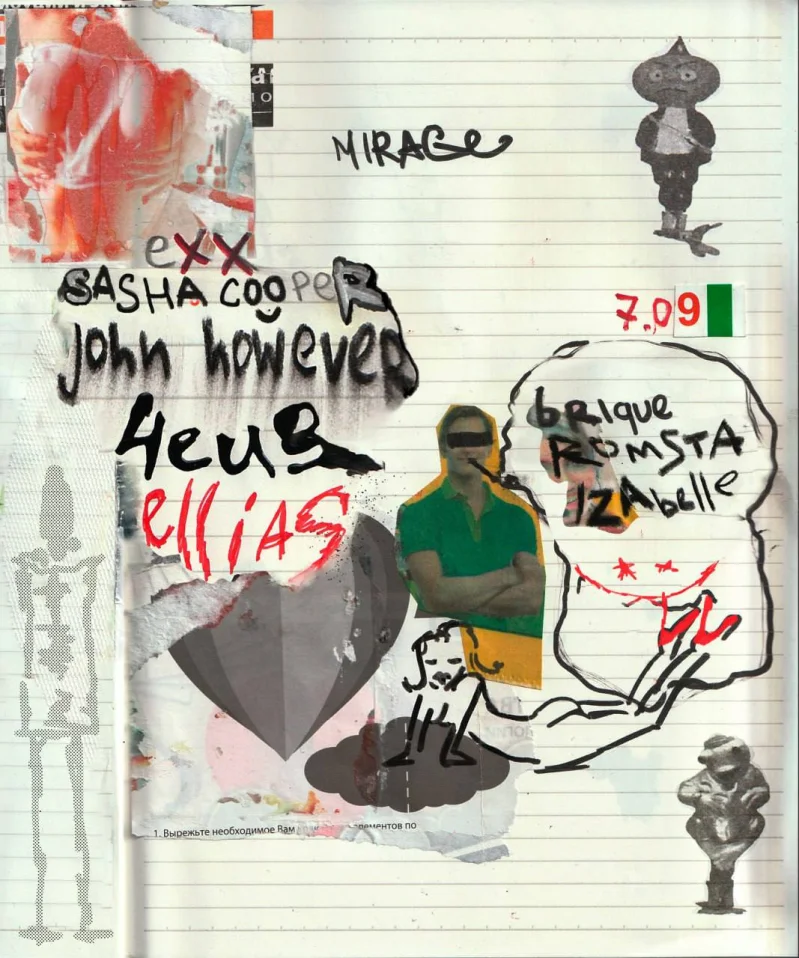 MIRAGe
exx
SASHA COOPER
john however
7.09
brique
ROMSTA
IZAbelle
ellias
1. Вырежьте необходимое Вам
по